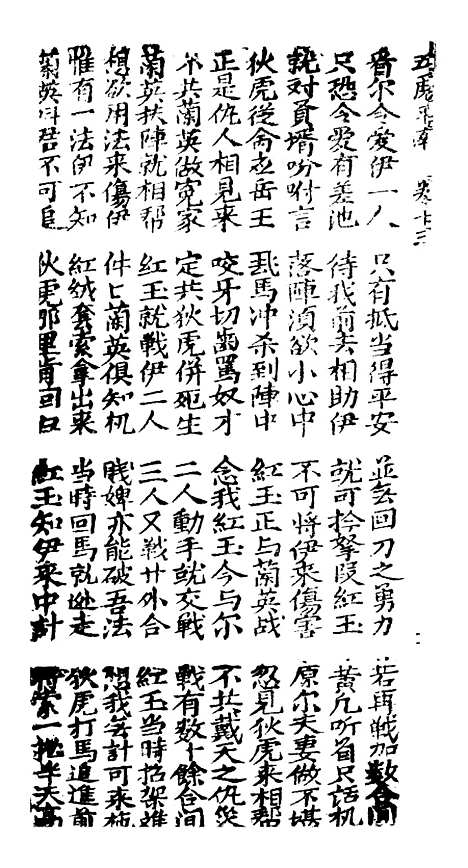 五虎平南 卷十三
音尔令爱伊一人 只有抵当得平安 並無回刀之勇力 若再戰加數合間
只恐令愛有差池 待我前去相助伊 就可拎拏段紅玉 黃凡听着只話机
就对員壻吩咐言 落陣湏欲小心中 不可將伊來傷害 原尔夫妻做不堪
狄虎從命在岳王 乱馬冲杀到陣中 紅玉正与蘭英战 忽見狄虎來相幫
正是仇人相見來 咬牙切齒罵奴才 念我紅玉今与尔 不共戴天之仇災
不共蘭英做冤家 定共狄虎併死生 二人動手就交戰 戰有数十餘合間
蘭英扶陣就相幫 紅玉就戰伊二人 三人又戰廿外合 紅玉当時招架难
想欲用法來傷伊 件匕蘭英俱知机 賎婢亦能破吾法 想我無計可來施
惟有一法伊不知 紅絨套索拿出來 当時回馬就逃走 狄虎打馬追進前
蘭英叫君不可追 狄虎那里肯回 紅玉知伊來中計 將索一抛半天高